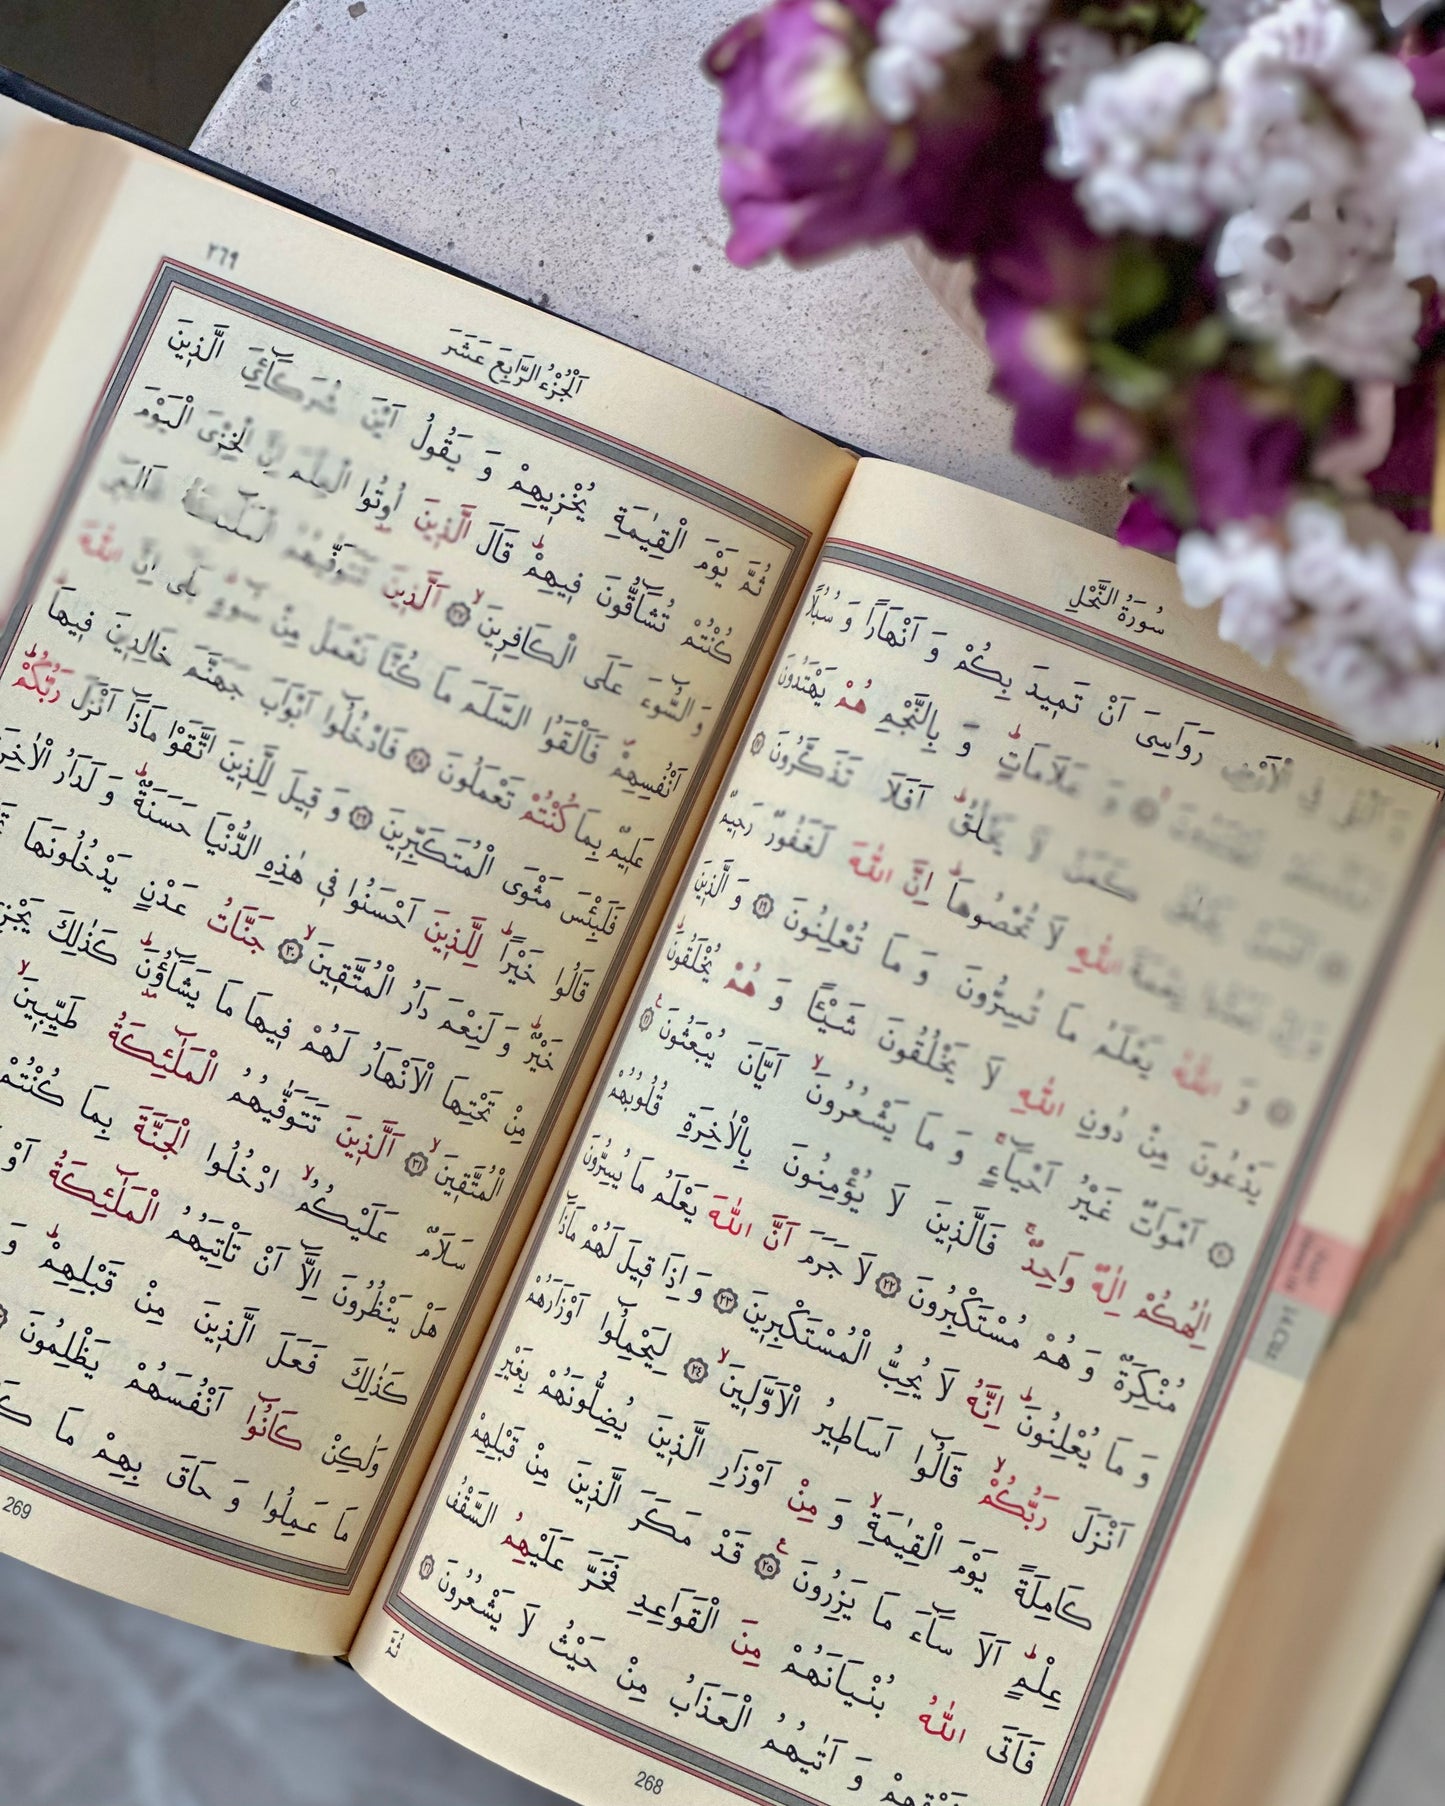 سُورَةُ النَّحْلِ
فِي الْاَرْضِ رَوَاسِىَ اَنْ تَمِيدَ بِكُمْ وَ اَنْهَارًا وَ سُبُلًا
وَ عَلَامَاتٍۜ وَ بِالنَّجْمِ هُمْ يَهْتَدُونَ
يَخْلُقُ كَمَنْ لَا يَخْلُقُۜ اَفَلَا تَذَكَّرُونَ ١٧
نِعْمَةَ اللّٰهِ لَا تُحْصُوهَاۜ اِنَّ اللّٰهَ لَغَفُورٌ رَحِيمٌ
وَ اللّٰهُ يَعْلَمُ مَا تُسِرُّونَ وَ مَا تُعْلِنُونَ ١٩ وَ الَّذِينَ
يَدْعُونَ مِنْ دُونِ اللّٰهِ لَا يَخْلُقُونَ شَيْئًا وَ هُمْ يُخْلَقُونَۜ
٢٠ اَمْوَاتٌ غَيْرُ اَحْيَٓاءٍۚ وَ مَا يَشْعُرُونَۙ اَيَّانَ يُبْعَثُونَ ٢١
اِلٰهُكُمْ اِلٰهٌ وَاحِدٌۚ فَالَّذِينَ لَا يُؤْمِنُونَ بِالْاٰخِرَةِ قُلُوبُهُمْ
مُنْكِرَةٌ وَ هُمْ مُسْتَكْبِرُونَ ٢٢ لَا جَرَمَ اَنَّ اللّٰهَ يَعْلَمُ مَا يُسِرُّونَ
وَ مَا يُعْلِنُونَۜ اِنَّهُ لَا يُحِبُّ الْمُسْتَكْبِرِينَ ٢٣ وَ اِذَا قِيلَ لَهُمْ مَاذَٓا
اَنْزَلَ رَبُّكُمْۙ قَالُٓوا اَسَاطِيرُ الْاَوَّلِينَۙ ٢٤ لِيَحْمِلُٓوا اَوْزَارَهُمْ
كَامِلَةً يَوْمَ الْقِيٰمَةِۙ وَ مِنْ اَوْزَارِ الَّذِينَ يُضِلُّونَهُمْ بِغَيْرِ
عِلْمٍۜ اَلَا سَٓاءَ مَا يَزِرُونَ ٢٥ قَدْ مَكَرَ الَّذِينَ مِنْ قَبْلِهِمْ
فَاَتَى اللّٰهُ بُنْيَانَهُمْ مِنَ الْقَوَاعِدِ فَخَرَّ عَلَيْهِمُ السَّقْفُ
وَ اَتٰيهُمُ الْعَذَابُ مِنْ حَيْثُ لَا يَشْعُرُونَ ٢٦
ثُمَّ
268
٢٦٩
اَلْجُزْءُ الرَّابِعَ عَشَرَ
ثُمَّ يَوْمَ الْقِيٰمَةِ يُخْزِيهِمْ وَ يَقُولُ اَيْنَ شُرَكَٓائِىَ الَّذِينَ
كُنْتُمْ تُشَٓاقُّونَ فِيهِمْۜ قَالَ الَّذِينَ اُو۫تُوا الْعِلْمَ اِنَّ الْخِزْىَ الْيَوْمَ
وَ السُّٓوءَ عَلَى الْكَافِرِينَۙ ٢٧ اَلَّذِينَ تَتَوَفّٰيهُمُ الْمَلٰٓئِكَةُ ظَالِمِٓى
اَنْفُسِهِمْۖ فَاَلْقَوُا السَّلَمَ مَا كُنَّا نَعْمَلُ مِنْ سُٓوءٍۜ بَلٰٓى اِنَّ اللّٰهَ
عَلِيمٌ بِمَا كُنْتُمْ تَعْمَلُونَ ٢٨ فَادْخُلُٓوا اَبْوَابَ جَهَنَّمَ خَالِدِينَ فِيهَاۜ
فَلَبِئْسَ مَثْوَى الْمُتَكَبِّرِينَ ٢٩ وَ قِيلَ لِلَّذِينَ اتَّقَوْا مَاذَٓا اَنْزَلَ رَبُّكُمْۜ
قَالُوا خَيْرًاۜ لِلَّذِينَ اَحْسَنُوا فِي هٰذِهِ الدُّنْيَا حَسَنَةٌۜ وَ لَدَارُ الْاٰخِرَةِ
خَيْرٌۜ وَ لَنِعْمَ دَارُ الْمُتَّقِينَۙ ٣٠ جَنَّاتُ عَدْنٍ يَدْخُلُونَهَا
مِنْ تَحْتِهَا الْاَنْهَارُ لَهُمْ فِيهَا مَا يَشَٓاؤُ۫نَۜ كَذٰلِكَ
الْمُتَّقِينَۙ ٣١ اَلَّذِينَ تَتَوَفّٰيهُمُ الْمَلٰٓئِكَةُ طَيِّبِينَۙ
سَلَامٌ عَلَيْكُمُۙ ادْخُلُوا الْجَنَّةَ بِمَا كُنْتُمْ
هَلْ يَنْظُرُونَ اِلَّٓا اَنْ تَاْتِيَهُمُ الْمَلٰٓئِكَةُ اَوْ
كَذٰلِكَ فَعَلَ الَّذِينَ مِنْ قَبْلِهِمْۜ وَ
وَلٰكِنْ كَانُٓوا اَنْفُسَهُمْ يَظْلِمُونَ
مَا عَمِلُوا وَ حَاقَ بِهِمْ مَا
269